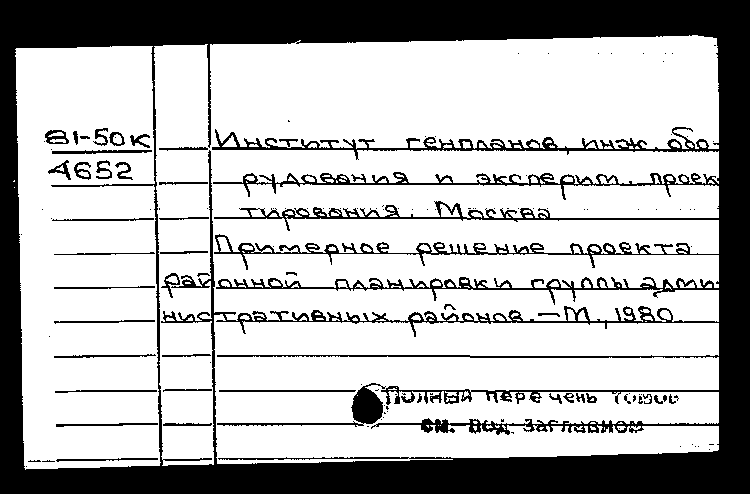 81-50к
4652
Институт генпланов, инж. обо-
рудования и эксперим. проек
тирования. Москва
Примерное решение проекта
районной планировки группы адми-
нистративных районов. — М., 1980
Полный перечень томов
см. под заглавном